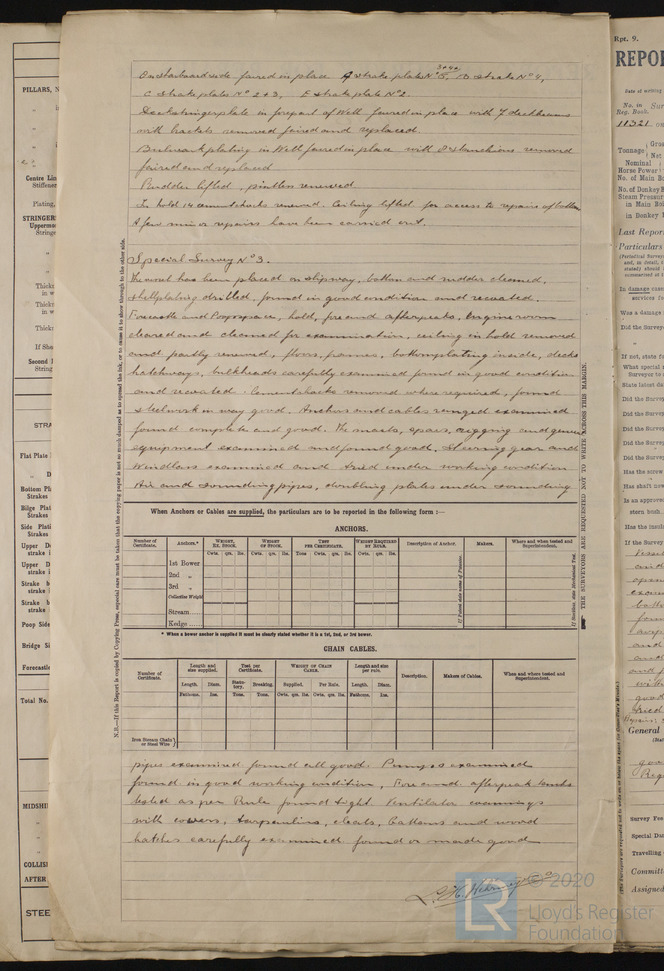 On starboard side faired in place A strake plate N° 5, D strake N° 4,
3+4+
C strake plates N° 2+3, E strake plate N° 2.
Deckstringerplate in forepart of Well faired in place with 7 deckbeams
with brackets removed faired and replaced.
Bulwark plating in Well faired in place with 8 stanchions removed
faired and replaced
Rudder lifted, pintles renewed
In hold 14 cementchocks renewed. Ceiling lifted for access to repairs of bottom
A few minor repairs have been carried out.
Special Survey N° 3.
The vessel has been placed on slipway, bottom and rudder cleaned,
shellplating drilled, found in good condition and recoated.
Forecastle and Poopspaces, hold, fore and afterpeaks, Engine room
cleared and cleaned for examination, ceiling in hold removed
and partly renewed, floors, frames, bottomplating inside, decks
hatchways, bulkheads carefully examined found in good condition
and recoated. Cementchocks removed where required, found
steelwork in way good. Anchors and cables ranged examined
found complete and good. The masts, spars, rigging and general
equipment examined and found good. Steering gear and
Windlass examined and tried under working condition
Air and sounding pipes, doubling plates under sounding
When Anchors or Cables are supplied, the particulars are to be reported in the following form :—
ANCHORS.
Number of Certificate. Anchors.* WEIGHT, EX. STOCK. WEIGHT OF STOCK. TEST PER CERTIFICATE. WEIGHT REQUIRED BY RULE. Description of Anchor. Makers. Where and when tested and Superintendent.
Cwts. qrs. lbs. Cwts. qrs. lbs. Tons Cwt. qrs. lbs. Cwts. qrs. lbs.
1st Bower
2nd "
3rd "
Collective Weight
Stream
Kedge
* When a bower anchor is supplied it must be clearly stated whether it is a 1st, 2nd, or 3rd bower.
CHAIN CABLES.
Number of Certificate. Length and size supplied. Test per Certificate. WEIGHT OF CHAIN CABLE. Length and size per rule. Description. Makers of Cables. Where and when tested and Superintendent.
Length. Diam. Statutory. Breaking. Supplied. Per Rule. Length. Diam.
Fathoms. Ins. Tons. Tons. Cwts. qrs. lbs. Cwts. qrs. lbs. Fathoms. Ins.
Iron Stream Chain or Steel Wire
pipes examined found all good. Pumps examined
found in good working condition. Fore and afterpeak tanks
tested as per Rule found tight. Ventilator coamings
with covers, tarpaulins, cleats, battens and wood
hatches carefully examined found or made good
N.B.—If this Report is copied by Copying Press, especial care must be taken that the copying paper is not so much damped as to spread the ink, or to cause it to show through to the other side.
THE SURVEYORS ARE REQUESTED NOT TO WRITE ACROSS THIS MARGIN.
PILLARS,
Centre Lin
Stiffene
Plating,
STRINGERS
Uppermo
String
Thickn
in w
Second
String
STRA
Flat Plate
Bottom Pl
Strakes
Bilge Plat
Strakes
Side Plati
Strakes
Upper D
strake
Upper D
strake
Strake b
strake
Strake b
strake
Poop Side
Bridge Si
Forecastle
Total No.
MIDSHI
COLLISI
AFTER
STEE
Rpt. 9.
REPO
No. in
Reg. Book.
11321
Tonnage
Nominal
Horse Power
No. of Main Bo
No. of Donkey B
Steam Pressure
in Main Boi
in Donkey
Last Repor
Particulars
In damage case
Was a damage
Did the Survey
If not, state fo
What special
Surveyor to
State latest da
Did the Survey
Did the Survey
Did the Survey
Did the Survey
Has the screw
Has shaft now
Is an approve
stern bush
If the Survey
General
Survey Fee
Special Dat
Travelling
Committ
Assigned
LR
© 2020
Lloyd's Register
Foundation